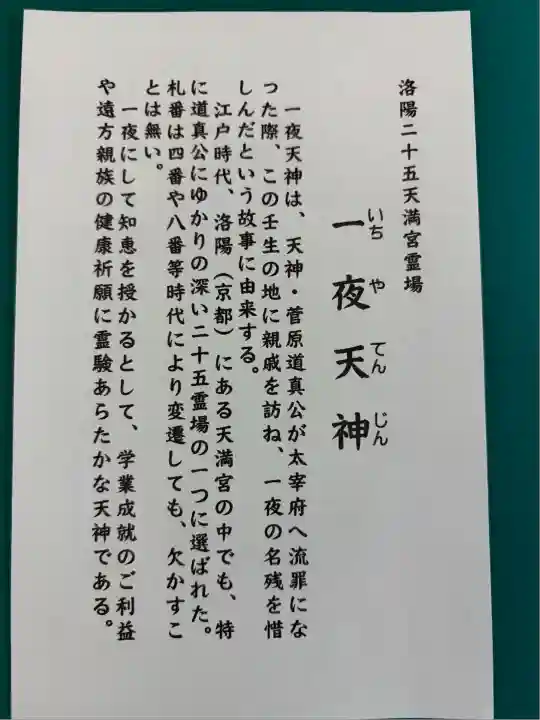 洛陽二十五天満宮霊場
いちやてんじん
一夜天神
一夜天神は、天神・菅原道真公が太宰府へ流罪にな
った際、この壬生の地に親戚を訪ね、一夜の名残を惜
しんだという故事に由来する。
江戸時代、洛陽（京都）にある天満宮の中でも、特
に道真公にゆかりの深い二十五霊場の一つに選ばれた。
札番は四番や八番等時代により変遷しても、欠かすこ
とは無い。
一夜にして知恵を授かるとして、学業成就のご利益
や遠方親族の健康祈願に霊験あらたかな天神である。